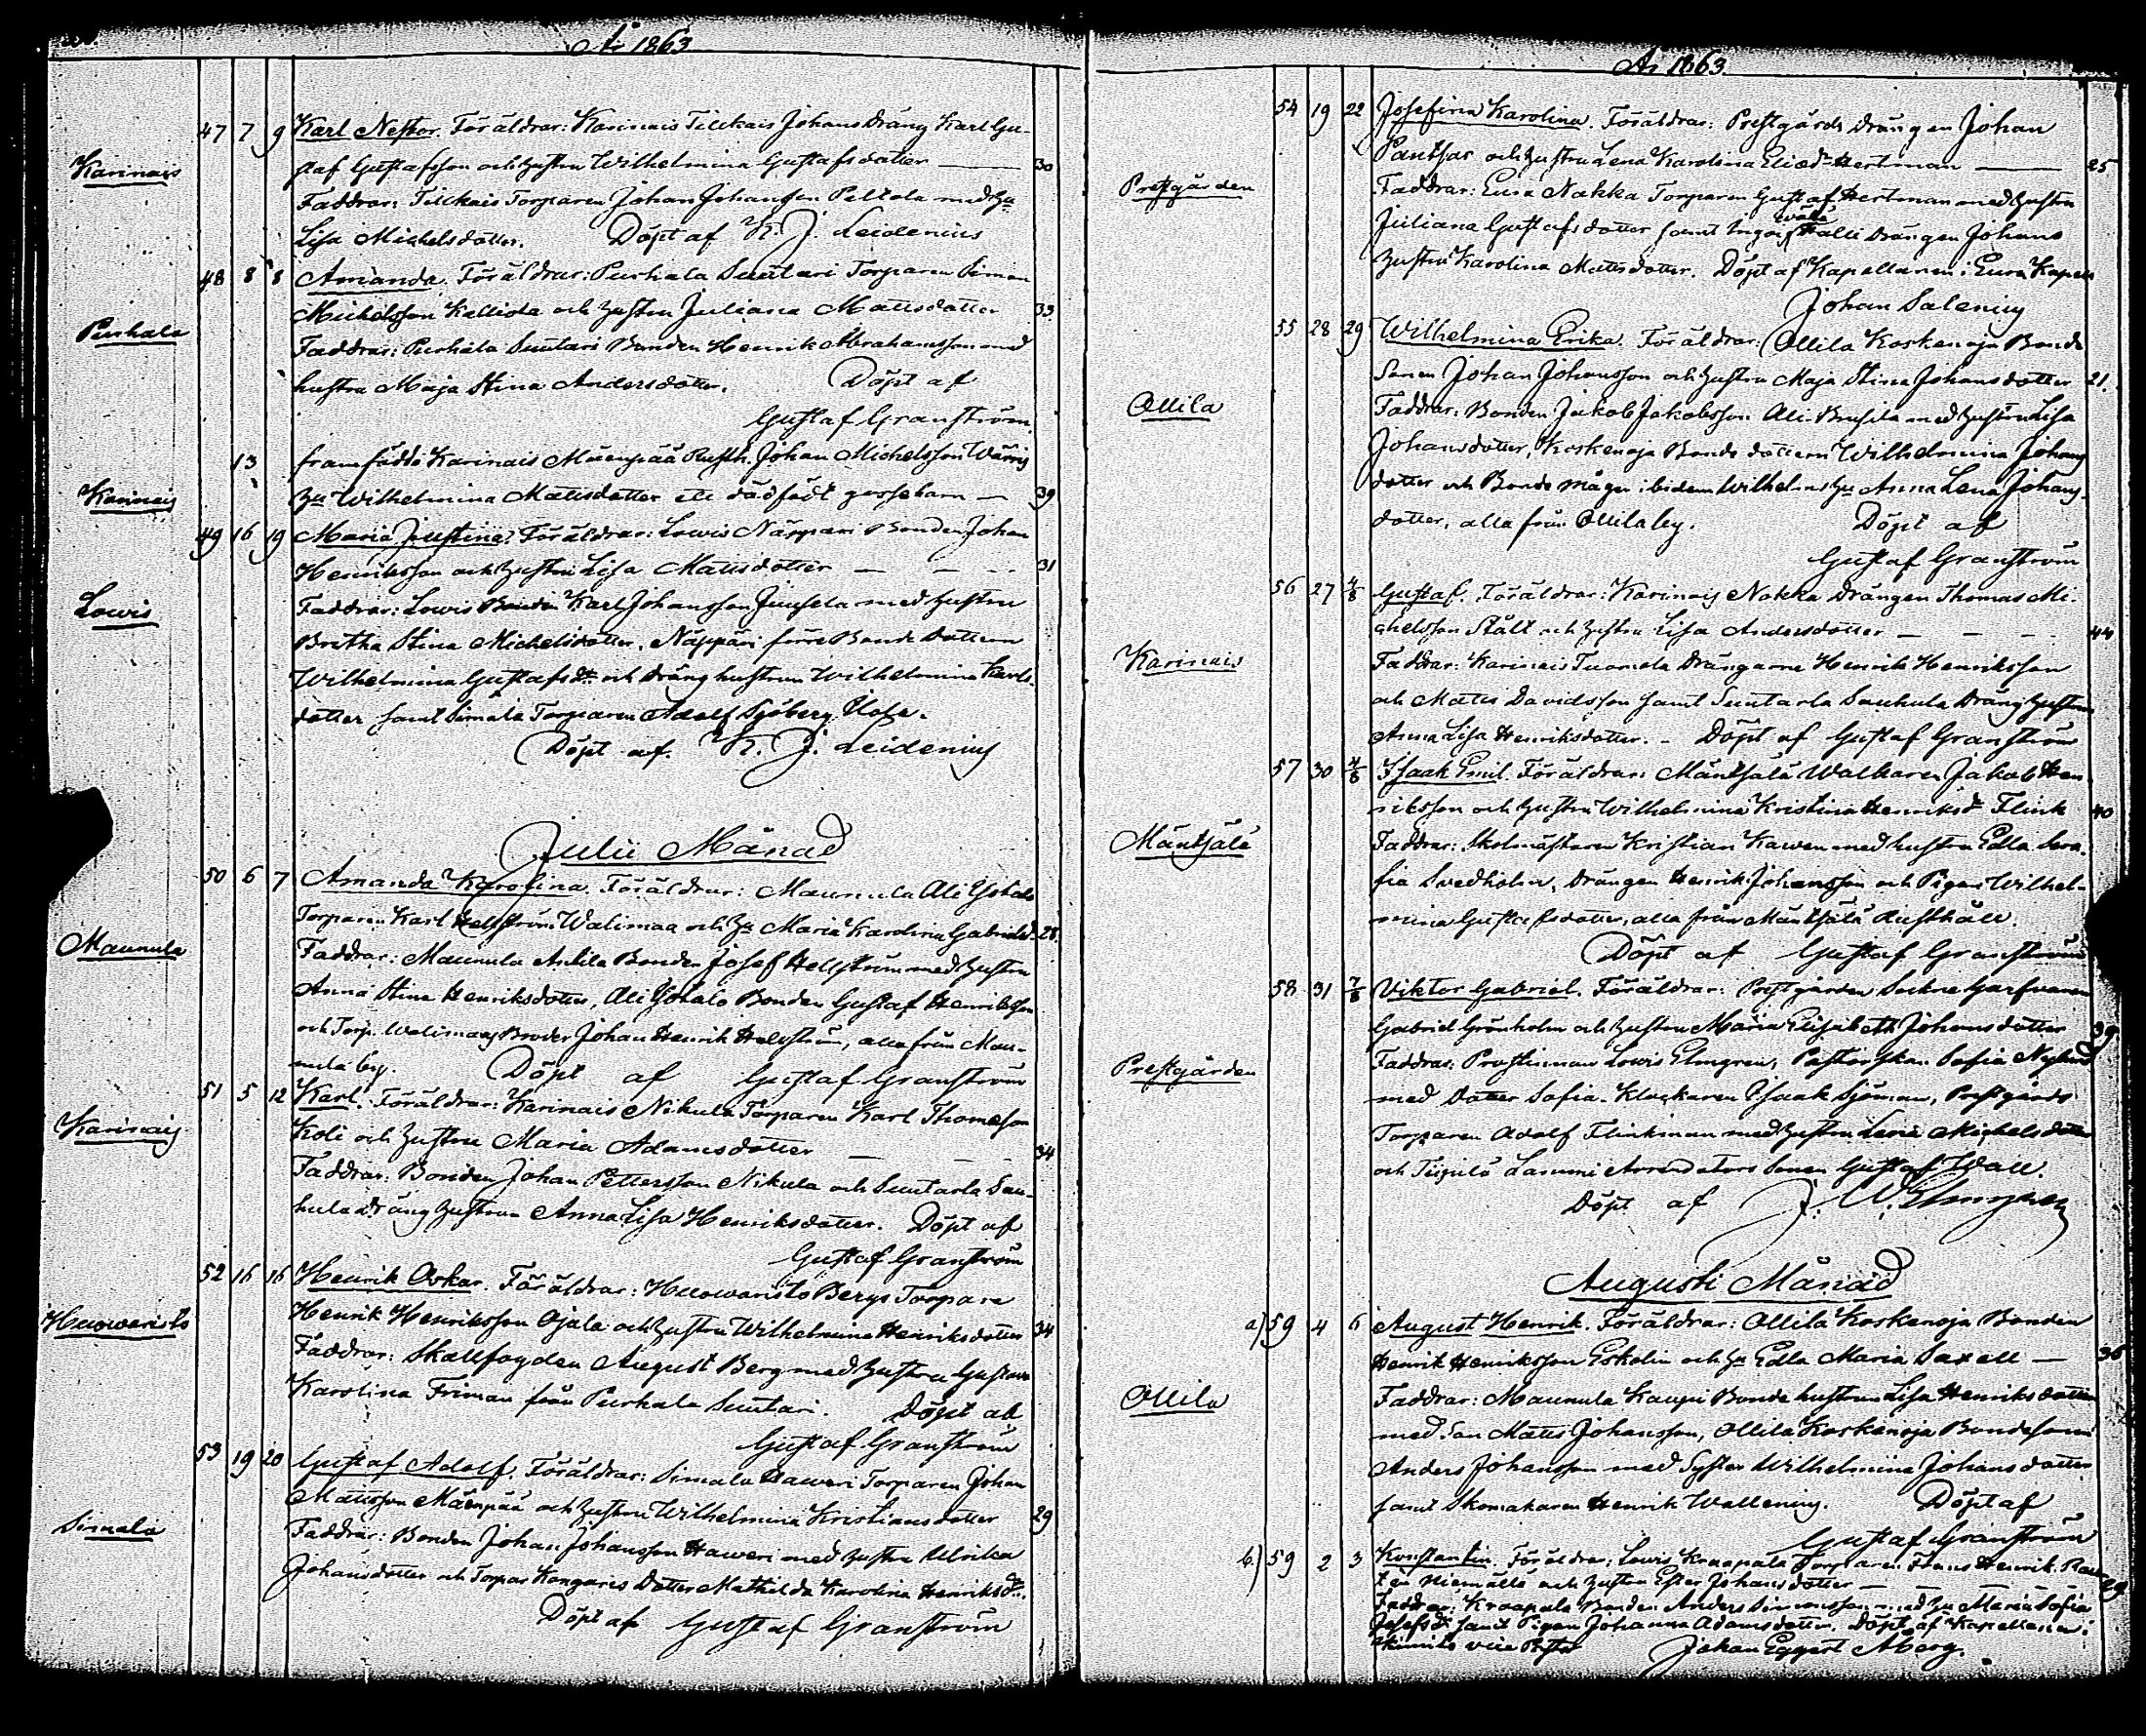 Ao 1863
Karinais
47 7 9 Karl Nestor. Föräldrar: Karinais Tilckais Johans Dräng Karl Gu-
staf Gustafsson och hustru Wilhelmina Gustafsdotter — 30
Faddrar: Tilckais Torparen Johan Johansson Peltola med Hu
Lisa Michelsdotter. Döpt af K. J. Leidenius
Purhala
48 8 8 Amanda. Föräldrar: Purhala Suutari Torparen Simon
Michelsson Kalliota och hustru Juliana Mattsdotter 33
Faddrar: Purhala Suutari Bonden Henrik Abrahamsson med
hustru Maja Stina Andersdotter. Döpt af
Gustaf Granström.
Karinais
13 framfödde Karinais Mäenpää Rusth. Johan Michelsson Wärris
Hu Wilhelmina Mattsdotter ett dödfödt gossebarn — 39
Lowis
49 16 19 Maria Justina. Föräldrar: Lowis Näppäri Bonden Johan
Henriksson och hustru Lisa Mattsdotter — — — 31
Faddrar: Lowis Bonden Karl Johansson Juusela med hustru
Bretha Stina Michelsdotter, Näppäri förre Bonde dottern
Wilhelmina Gustafsdr och Dräng hustrun Wilhelmina Karls-
dotter samt Sirnala Torparen Adolf Sjöberg
Döpt af. K. J. Leidenius
Julii Månad
Maunula
50 6 7 Amanda Karolina. Föräldrar: Maunula Ali Ystalo
Torparen Karl Hellström Walimaa och Hu Maria Karolina Gabrielsd. 28.
Faddrar: Maunula Anttila Bonden Josef Hellström med hustru
Anna Stina Henriksdotter, Ali Yotalo Bonden Gustaf Henriksson
och Torp. Walimaas Broder Johan Henrik Hellström, alla från Mau-
nula by. Döpt af Gustaf Granström
Karinais
51 5 12 Karl. Föräldrar: Karinais Nikula Torparen Karl Thomasson
Koli och hustru Maria Adamsdotter — — — 34
Faddrar: Bonden Johan Pettersson Nikula och Suutarla Sau-
hula dräng hustrun Anna Lisa Henriksdotter. Döpt af
Gustaf Granström
Huowaristo
52 16 16 Henrik Oskar. Föräldrar: Huowaristo Bergs Torpare
Henrik Henriksson Ojala och hustru Wilhelmina Henriksdotter 34
Faddrar: Skallfogden August Berg med hustru Gustava
Karolina Friman från Purhala Suutari. Döpt af
Gustaf Granström
Sirnala
53 19 20 Gustaf Adolf. Föräldrar: Sirnala Haweri Torparen Johan
Mattsson Mäenpää och hustru Wilhelmina Kristiansdotter 29
Faddrar: Bonden Johan Johansson Haweri med hustru Ulrika
Johansdotter och Torpar Kangaris Dotter Mathilda Karolina Henriksdr.
Döpt af Gustaf Granström
Ao 1863
Prestgården
54 19 22 Josefina Karolina. Föräldrar: Prestgårds drängen Johan
Pantsar och hustru Lena Karolina Eliæd. Hertman — 25
Faddrar: Eura Nakka Torparen Gustaf Hertman med hustru
Juliana Gustafsdotter samt drängen Johans
hustru Karolina Mattsdotter. Döpt af Kapellanen i Eura Kapell
Johan Salenius
Ollila
55 28 29 Wilhelmina Erika. Föräldrar: Ollila Koskenoja Bonde
Sonen Johan Johansson och hustru Maja Stina Johansdotter 21.
Faddrar: Bonden Jakob Jakobsson Ali Brusila med hustru Lisa
Johansdotter, Koskenoja Bonde dottern Wilhelmina Johans
dotter och Bonde mågen ibidem Wilhelms Hu Anna Lena Johans-
dotter, alla från Ollila by. Döpt af
Gustaf Granström
Karinais
56 27 4/8 Gustaf. Föräldrar: Karinais Nakka Drängen Thomas Mi-
chelsson Stålt och hustru Lisa Andersdotter — — — 44
Faddrar: Karinais Tuomola Drängarne Henrik Henriksson
och Matts Davidsson samt Suutarla Sauhula Dräng hustrun
Anna Lisa Henriksdotter. - Döpt af Gustaf Granström
Mäntsälä
57 30 4/8 Isaak Emil. Föräldrar: Mäntsälä Walkaren Jakob Hen-
riksson och hustru Wilhelmina Kristina Henriksd Flink 40
Faddrar: Skolmästaren Kristian Kawen med hustru Edla Sera-
fia Svedholm, Drängen Henrik Johansson och Pigan Wilhel-
mina Gustafsdotter, alla från Mäntsälä Rusthåll.
Döpt af Gustaf Granström
Prestgården
58 31 7/8 Viktor Gabriel. Föräldrar: Prestgården Sockne Garfvaren
Gabriel Grönholm och hustru Maria Elisabeth Johansdotter 39
Faddrar: Prostinnan Lowis Elmgren, Pastorskan Sofia Nylund
med Dotter Sofia. Klockaren Isaak Sjöman, Prestgårds
Torparen Adolf Flinkman med hustru Lena Michelsdotter
och Tuipilä Lasumi Arrendators Sonen Gustaf Wall.
Döpt af J. W. Elmgren
Augusti Månad
Ollila
a) 59 4 6 August Henrik. Föräldrar: Ollila Koskenoja Bonden
Henrik Henriksson Eskolin och Hu Edla Maria Saxell — 36
Faddrar: Maunula Kaupi Bonde hustrun Lisa Henriksdotter
med Son Matts Johansson, Ollila Koskenoja Bondesonen
Anders Johansson med Syster Wilhelmina Johansdotter
samt Skomakaren Henrik Wallenius. Döpt af
Gustaf Granström
b) 59 2 3 Konstantin. Föräldrar: Lowis Kraapala Torparen Frans Henrik
Niemälä och hustru Ester Johansdotter — — — 29
Faddrar: Kraapala Bonden Anders Simonsson med Hu Maria Sofia
Josefsdr samt Pigan Johanna Adamsdotter. Döpt af Kapellanen i
Kimito vice Pastor Johan Eggert Aberg.